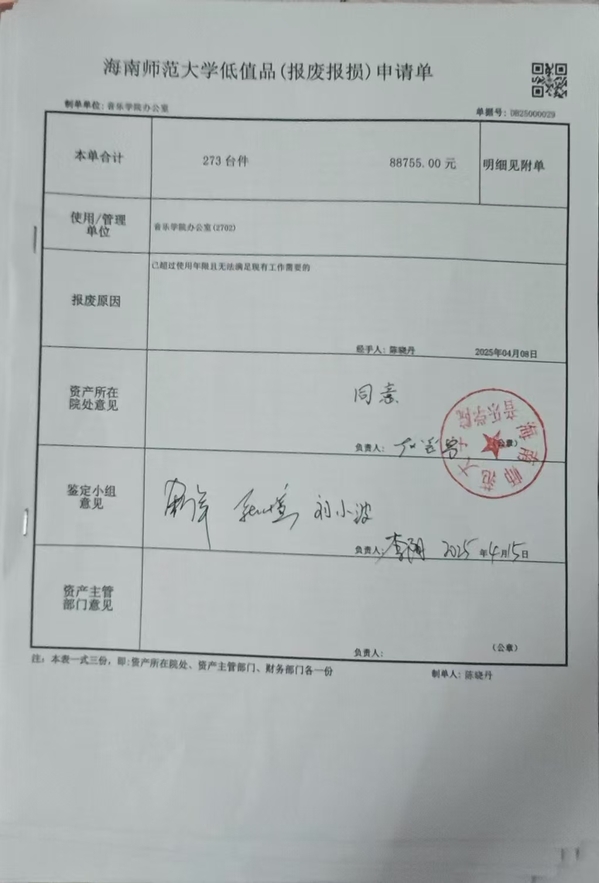 海南师范大学低值品(报废报损)申请单
制单单位: 音乐学院办公室
单据号: DB25000029
本单合计 273 台件 88755.00 元 明细见附单
使用/管理
单位
音乐学院办公室(2702)
已超过使用年限且无法满足现有工作需要的
报废原因
经手人: 陈晓丹 2025年04月08日
资产所在
院处意见
同意
负责人: (公章)
海南师范大学
音乐学院
鉴定小组
意见
刘小波
负责人: 2025 年4月15日
资产主管
部门意见
负责人: (公章)
注: 本表一式三份, 即:资产所在院处、资产主管部门、财务部门各一份
制单人: 陈晓丹